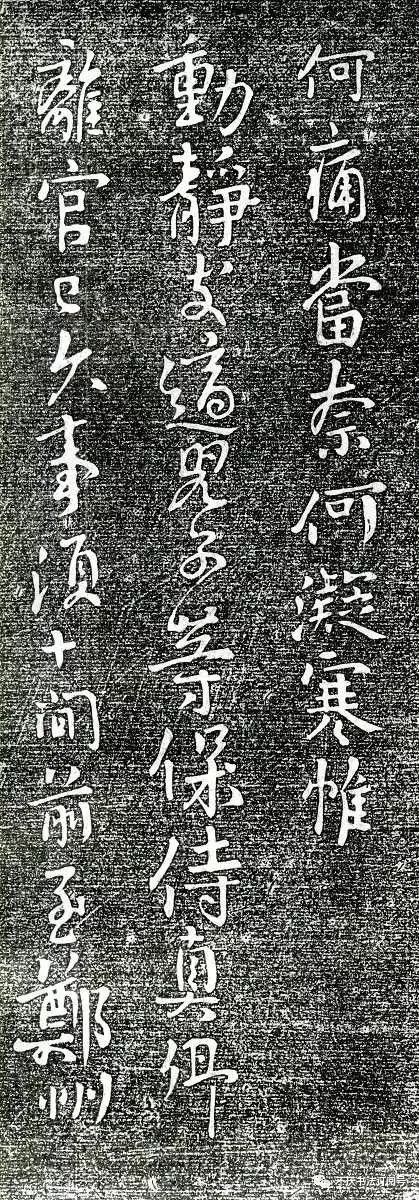 何痛當奈何凝寒惟
動靜支適兒子等保侍真卿
離官已久事須十間前至鄭州